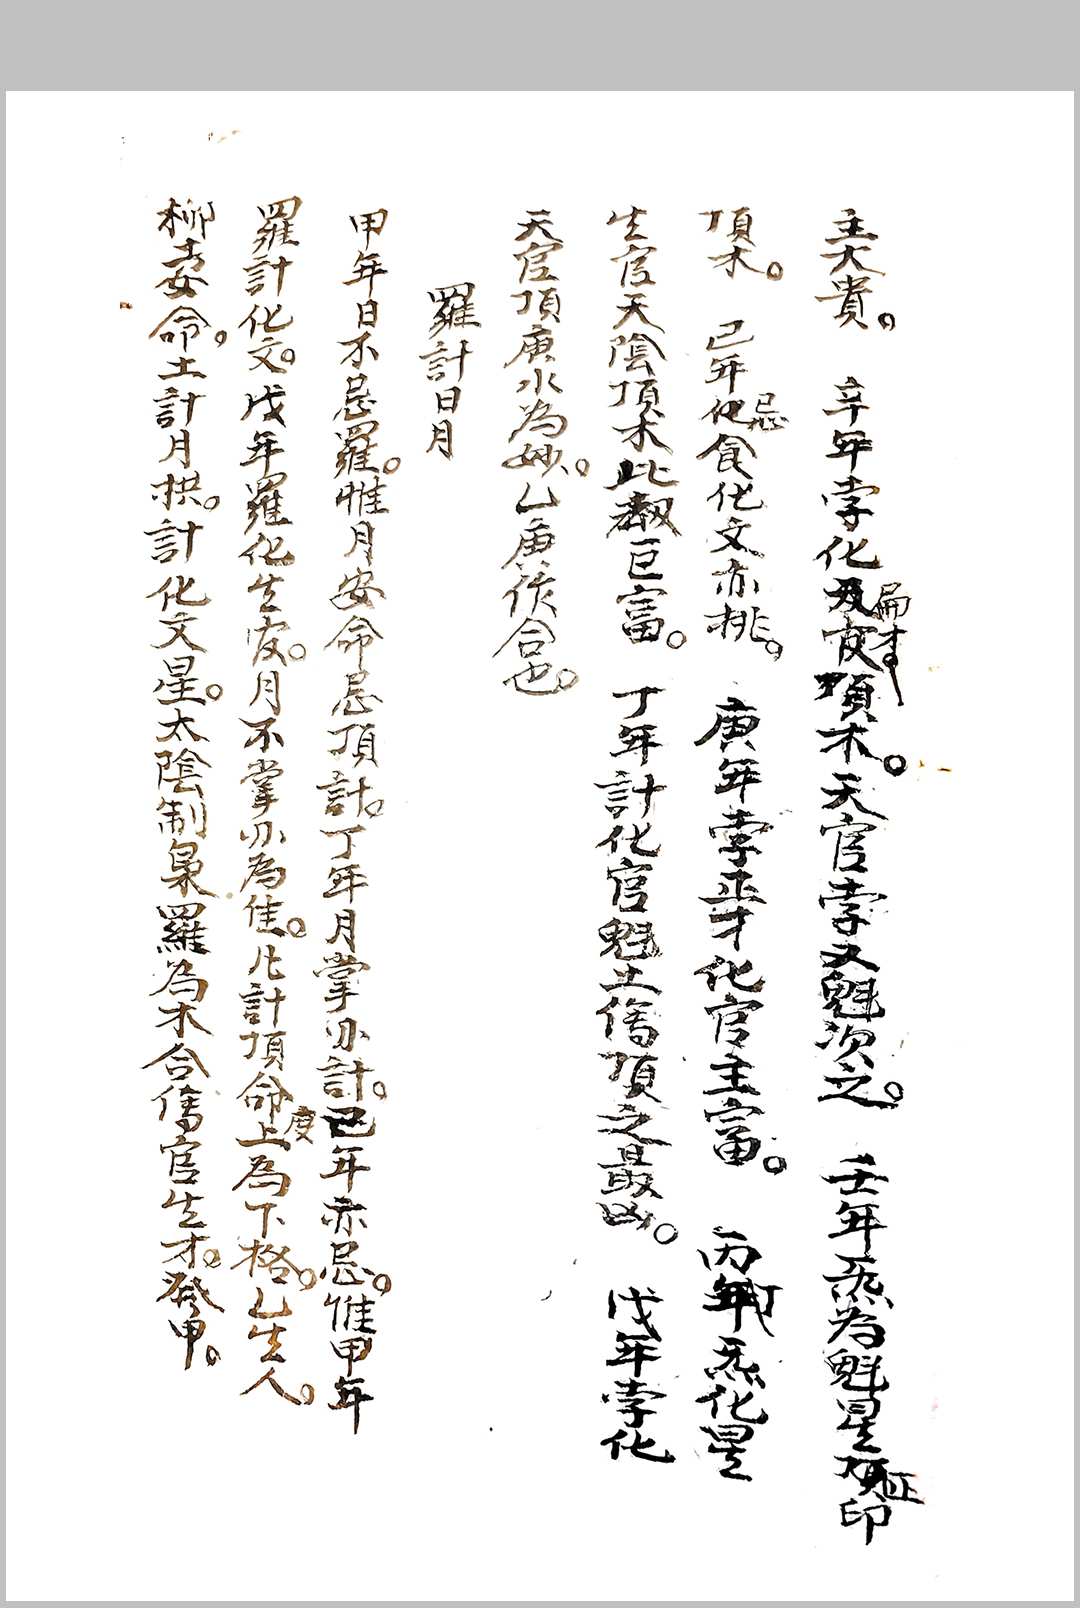 主大貴。　辛年孛化及夜頂木。天官孛又魁次之。　壬年炁為魁星頂印
扁才
正
頂木。　己年化食化文亦挑。　庚年孛正才化官主富。　丙年炁化星
忌
丁
生官天陰頂木此敷巨富。　丁年計化官魁土儁頂之最凶。　戊年孛化
天官頂庚水為妙。乙庚後合也。
羅計日月
甲年日不忌羅。惟月安命忌頂計。丁年月掌刃計。己年亦忌。惟甲年
羅計化文。戊年羅化生官。月不掌刃為佳。凡計頂命上為下格。乙生人。
度
柳安命。土計月拱。計化文星。太陰制梟羅為木合儁官生才。發甲。